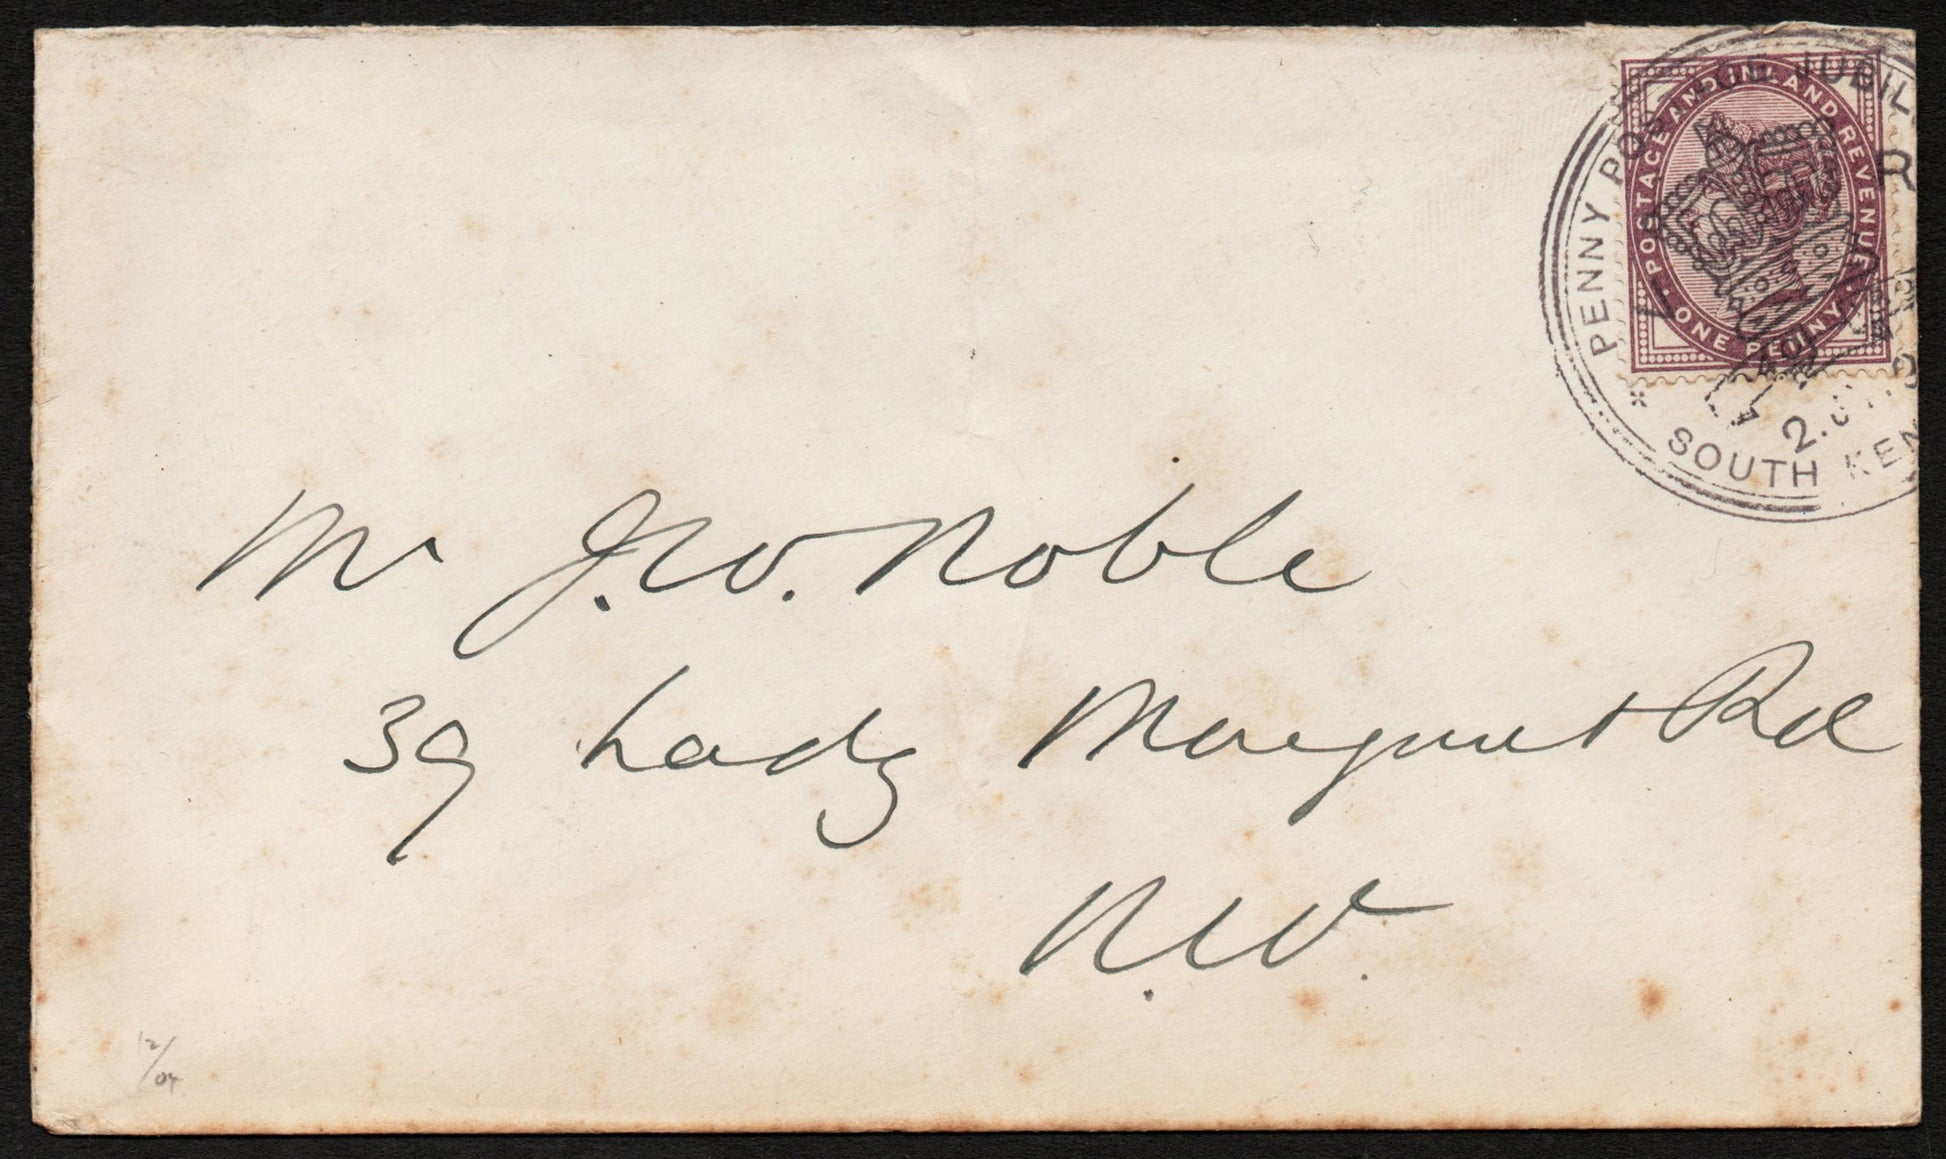 PENNY POSTAGE JUBIL
R
POSTAGE AND INLAND REVENUE
ONE PENNY
2.JY.
SOUTH KEN
Mr J.W. Noble
39 Lady Margaret Rd
N.W.
12/04